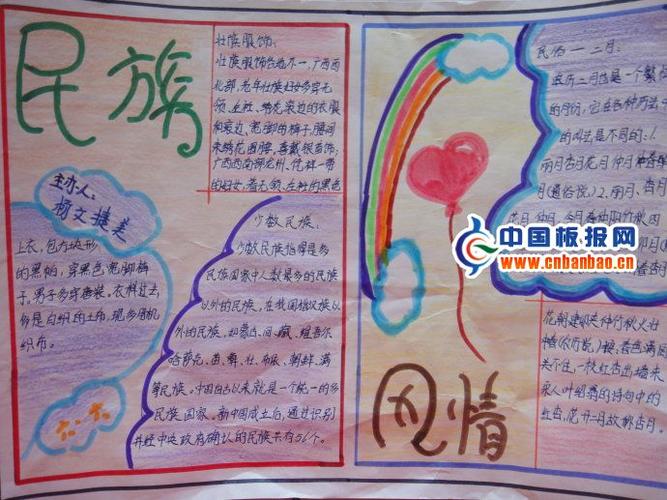 民族
壮族服饰:
壮族服饰各地不一,广西西
北部,老年壮族妇女多穿无
领、左衽、绣花滚边的衣服
和滚边、宽脚的裤子,腰间
束绣花围腰,喜戴银首饰;
广西西南部龙州、凭祥一带
的妇女,着无领、左衽的黑色
主办人:
杨文捷美
上衣,包方块形
的黑帕,穿黑色宽脚裤
子,男子多穿唐装。衣料过去
多是自织的土布,现多用机
织布。
六.一六
少数民族:
少数民族指得是多
民族国家中人数最多的民族
以外的民族,在我国指汉族以
外的民族,如蒙古、回、藏、维吾尔
哈萨克、苗、彝、壮、布依、朝鲜、满
等民族。中国自古以来就是一个统一的多
民族国家。新中国成立后,通过识别
并经中央政府确认的民族共有56个。
风情
民俗一二月:
农历二月也是一个繁
的月份,它在各种方法
的叫法是不同的:
月(通俗说)2、丽月、杏月
中国板报网
www.cnbanbao.cn
关不住,一枝红杏出墙来
采人叶绍翁的诗句中的
红杏,花开二月故称杏月。